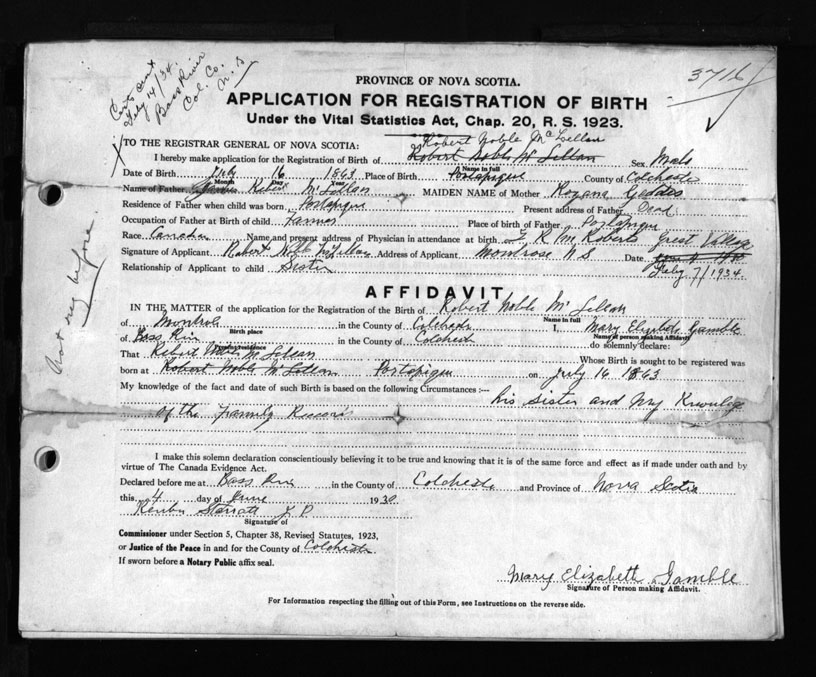 Certs sent
July 14/34.
Bass River
Col. Co.
N. S
Not reg before.
3716
PROVINCE OF NOVA SCOTIA.
APPLICATION FOR REGISTRATION OF BIRTH
Under the Vital Statistics Act, Chap. 20, R. S. 1923.
Robert Noble McLellan
TO THE REGISTRAR GENERAL OF NOVA SCOTIA:
I hereby make application for the Registration of Birth of Robert Noble McLellan Sex Male
Name in full
Date of Birth July 16 1863 Place of Birth Portapique County of Colchester
Month Day Year
Name of Father McLellan MAIDEN NAME of Mother Roxana Geddes
Residence of Father when child was born Portapique Present address of Father Dead
Occupation of Father at Birth of child Farmer Place of birth of Father Portapique
Race Canadian Name and present address of Physician in attendance at birth Roberts Great Village
Signature of Applicant Robert Noble McLellan Address of Applicant Montrose N S Date
July 7/1934.
Relationship of Applicant to child Sister
AFFIDAVIT
IN THE MATTER of the application for the Registration of the Birth of Robert Noble McLellan
Name in full
of Montrose in the County of Colchester I, Mary Elizabeth Gamble
Birth place Name of person making Affidavit
of Bass River in the County of Colchester do solemnly declare:
Present residence
That Robert Noble McLellan Whose Birth is sought to be registered was
born at Robert Noble McLellan Portapique on July 16 1863
My knowledge of the fact and date of such Birth is based on the following Circumstances :— his Sister and my Knowledge
of the Family Record
I make this solemn declaration conscientiously believing it to be true and knowing that it is of the same force and effect as if made under oath and by
virtue of The Canada Evidence Act.
Declared before me at Bass River in the County of Colchester and Province of Nova Scotia
this 4 day of June 1930
Reuben Starratt J P
Signature of
Commissioner under Section 5, Chapter 38, Revised Statutes, 1923,
or Justice of the Peace in and for the County of Colchester
If sworn before a Notary Public affix seal.
Mary Elizabeth Gamble
Signature of Person making Affidavit.
For Information respecting the filling out of this Form, see Instructions on the reverse side.